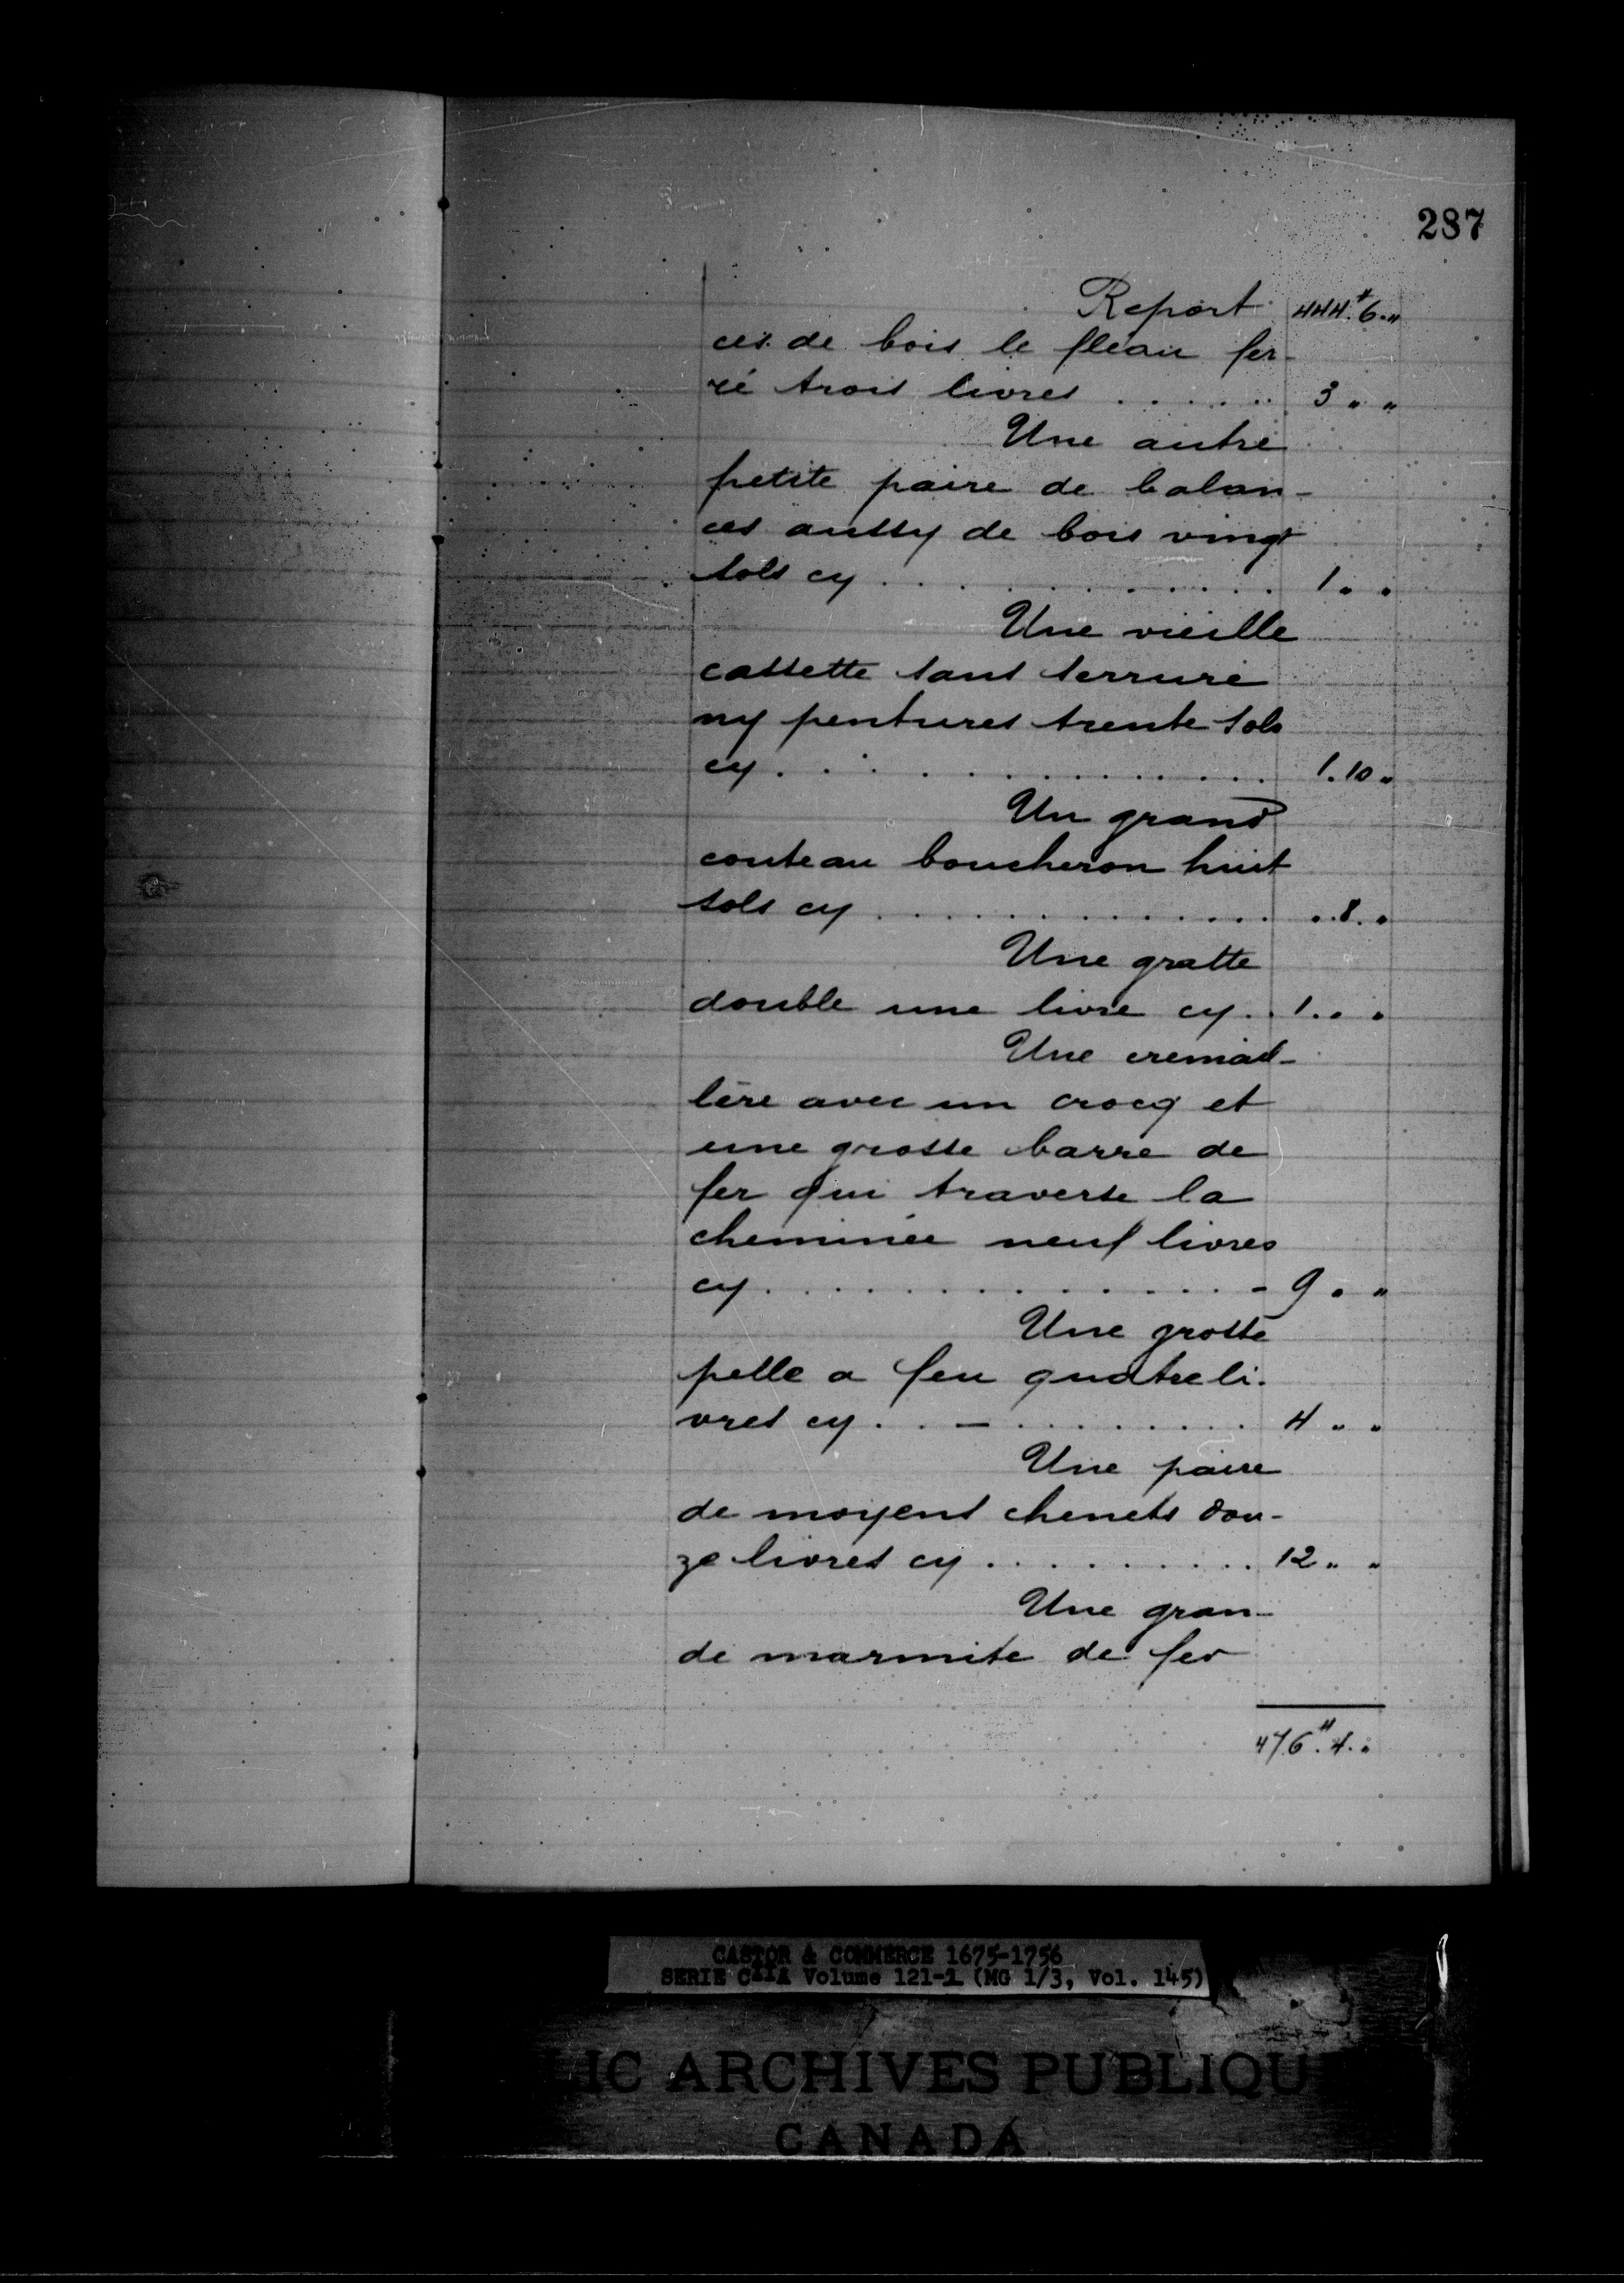 287
Report 444# 6 "
ces de bois le fléau fer-
ré trois livres . . . . . . 3 " "
Une autre
petite paire de balan-
ces aussy de bois vingt
sols cy . . . . . . . . . . . . 1 " "
Une vieille
cassette sans serrure
ny pentures trente sols
cy . . . . . . . . . . . . . . . 1. 10 "
Un grand
couteau boucheron huit
sols cy . . . . . . . . . . . . " 8. "
Une gratte
double une livre cy . . 1 " "
Une cremail-
lère avec un crocq et
une grosse barre de
fer qui traverse la
cheminée neuf livres
cy . . . . . . . . . . . . . . . - 9 " "
Une grosse
pelle a feu quatre li-
vres cy . . - . . . . . . . . . 4 " "
Une paire
de moyens chenets dou-
ze livres cy . . . . . . . . . 12 " "
Une gran-
de marmite de fer
476# 4. "
CASTOR & COMMERCE 1675-1756
SERIE C11A Volume 121-1 (MG 1/3, Vol. 145)
LIC ARCHIVES PUBLIQU
CANADA